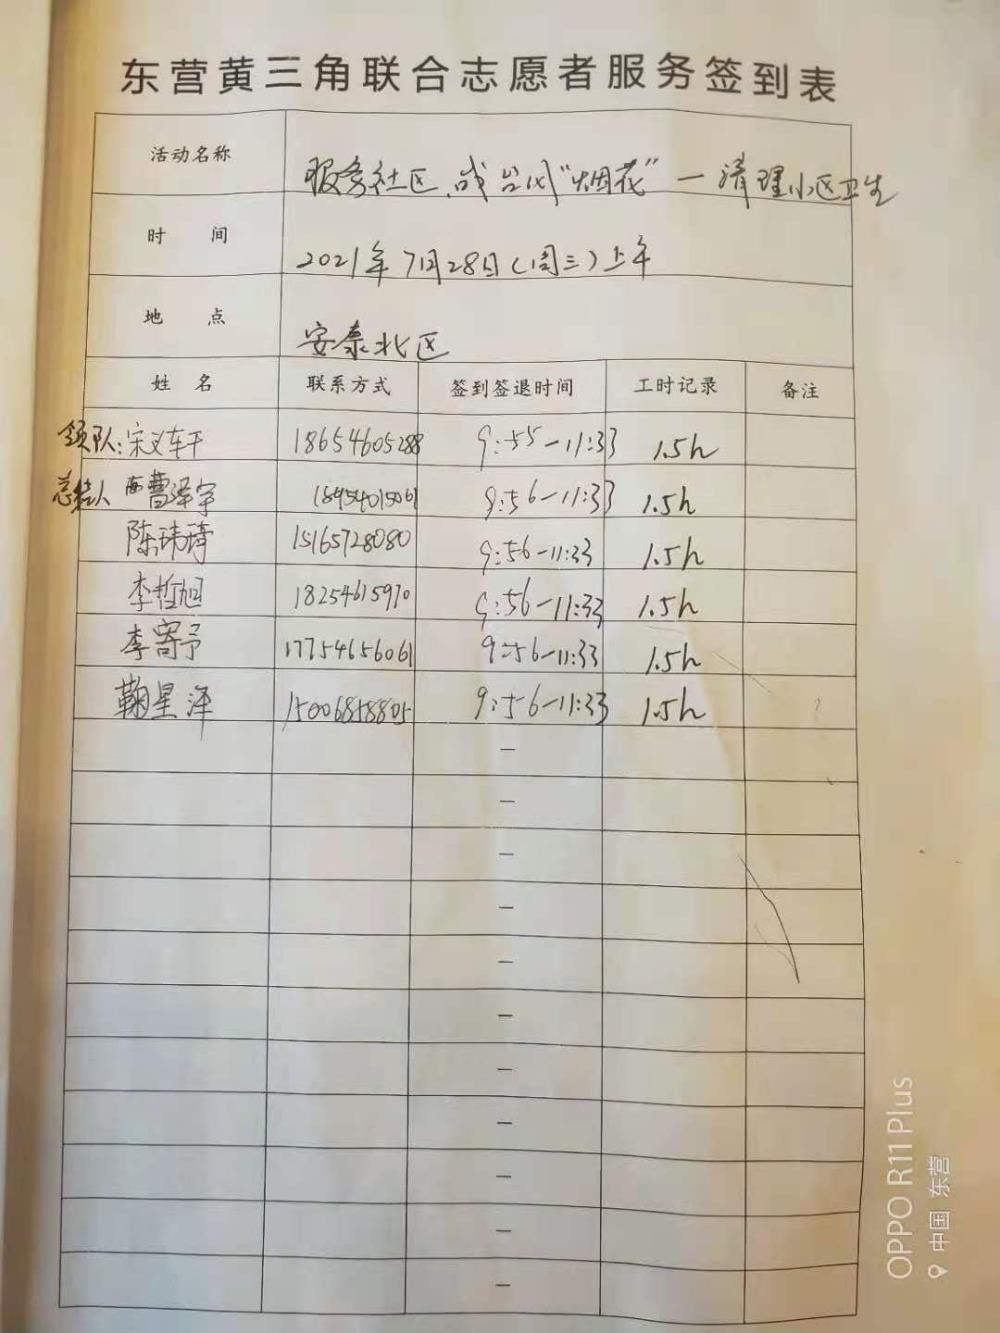 东营黄三角联合志愿者服务签到表
活动名称 服务社区,战台风"烟花"一清理小区卫生
时 间 2021年7月28日(周三)上午
地 点 安泰北区
姓 名 联系方式 签到签退时间 工时记录 备注
领队: 宋义 18654605288 9:55-11:33 1.5h
总结人 曹泽宇 9:56-11:33 1.5h
陈玮琦 15165728080 9:56-11:33 1.5h
李哲旭 18254615970 9:56-11:33 1.5h
李寄予 17754656061 9:56-11:33 1.5h
鞠星泽 15006858805 9:56-11:33 1.5h
—
—
—
—
—
—
—
—
—
—
—
OPPO R11 Plus
中国 东营